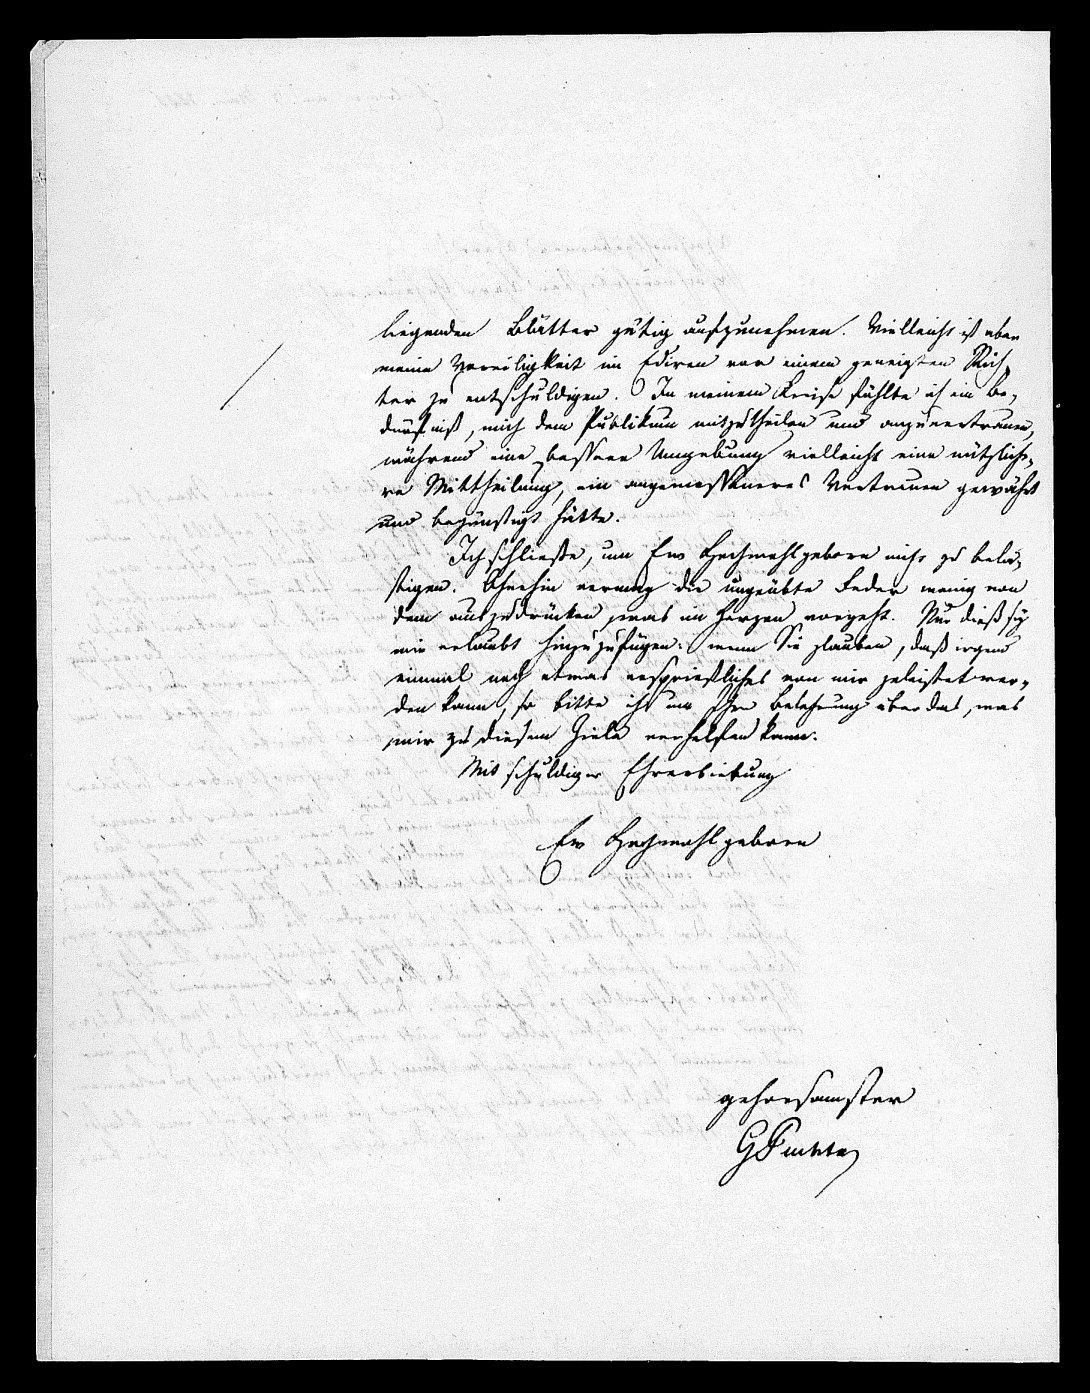 liegenden Blätter gütig aufzunehmen. Vielleicht ist aber
meine Voreiligkeit im Ediren vor einem geneigten Rich-
ter zu entschuldigen. In meinem Kreise fühlte ich ein Be-
dürfniß, mich dem Publikum mitzutheilen und anzuvertrauen,
während eine bessere Umgebung vielleicht eine nützliche-
re Mittheilung, ein angemesseneres Vertrauen gewährt
und begünstigt hätte.
Ich schließe, um Ew Hochwohlgeborn nicht zu belä-
stigen. Ohnehin vermag die ungeübte Feder wenig von
dem auszudrücken was im Herzen vorgeht. Nur dieß sey
mir erlaubt hinzuzufügen: wenn Sie glauben, daß irgend
einmal noch etwas ersprießliches von mir geleistet wer-
den kann, so bitte ich um Ihre Belehrung über das, was
mir zu diesem Ziele verhelfen kann.
Mit schuldiger Ehrerbietung
Ew Hochwohlgeborn
gehorsamster
G Puchta